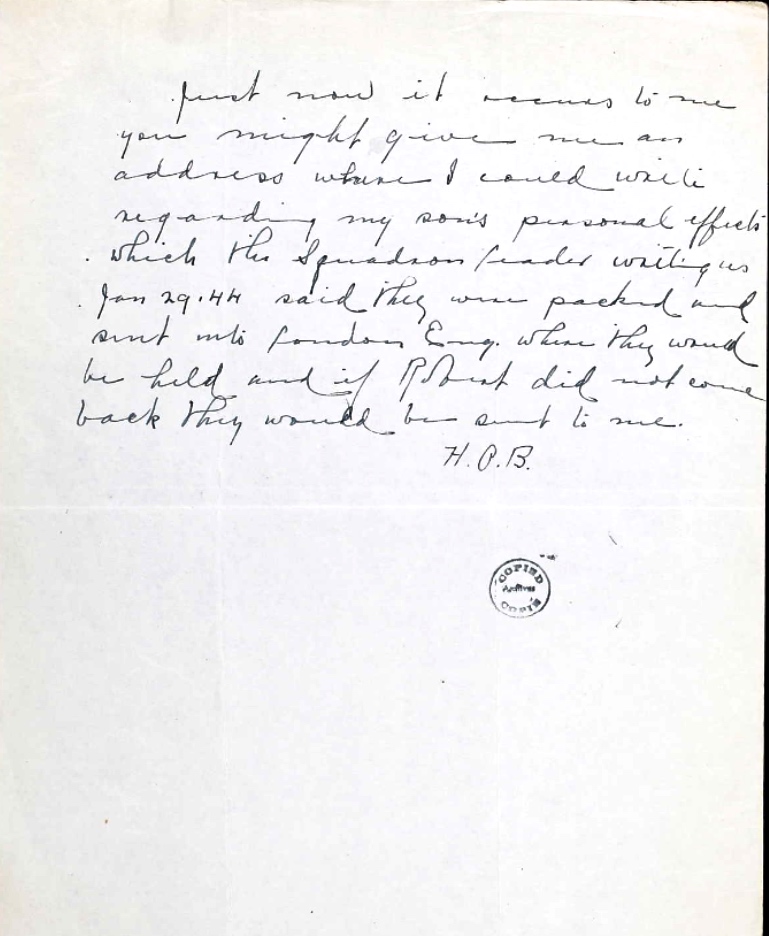 Just now it occurs to me
you might give me an
address where I could write
regarding my son's personal effects
which the Squadron Leader writing us
Jan 29.44 said they were packed and
sent into London Eng. where they would
be held and if Robert did not come
back they would be sent to me.
H. P. B.
COPIED
Archives
COPIÉ